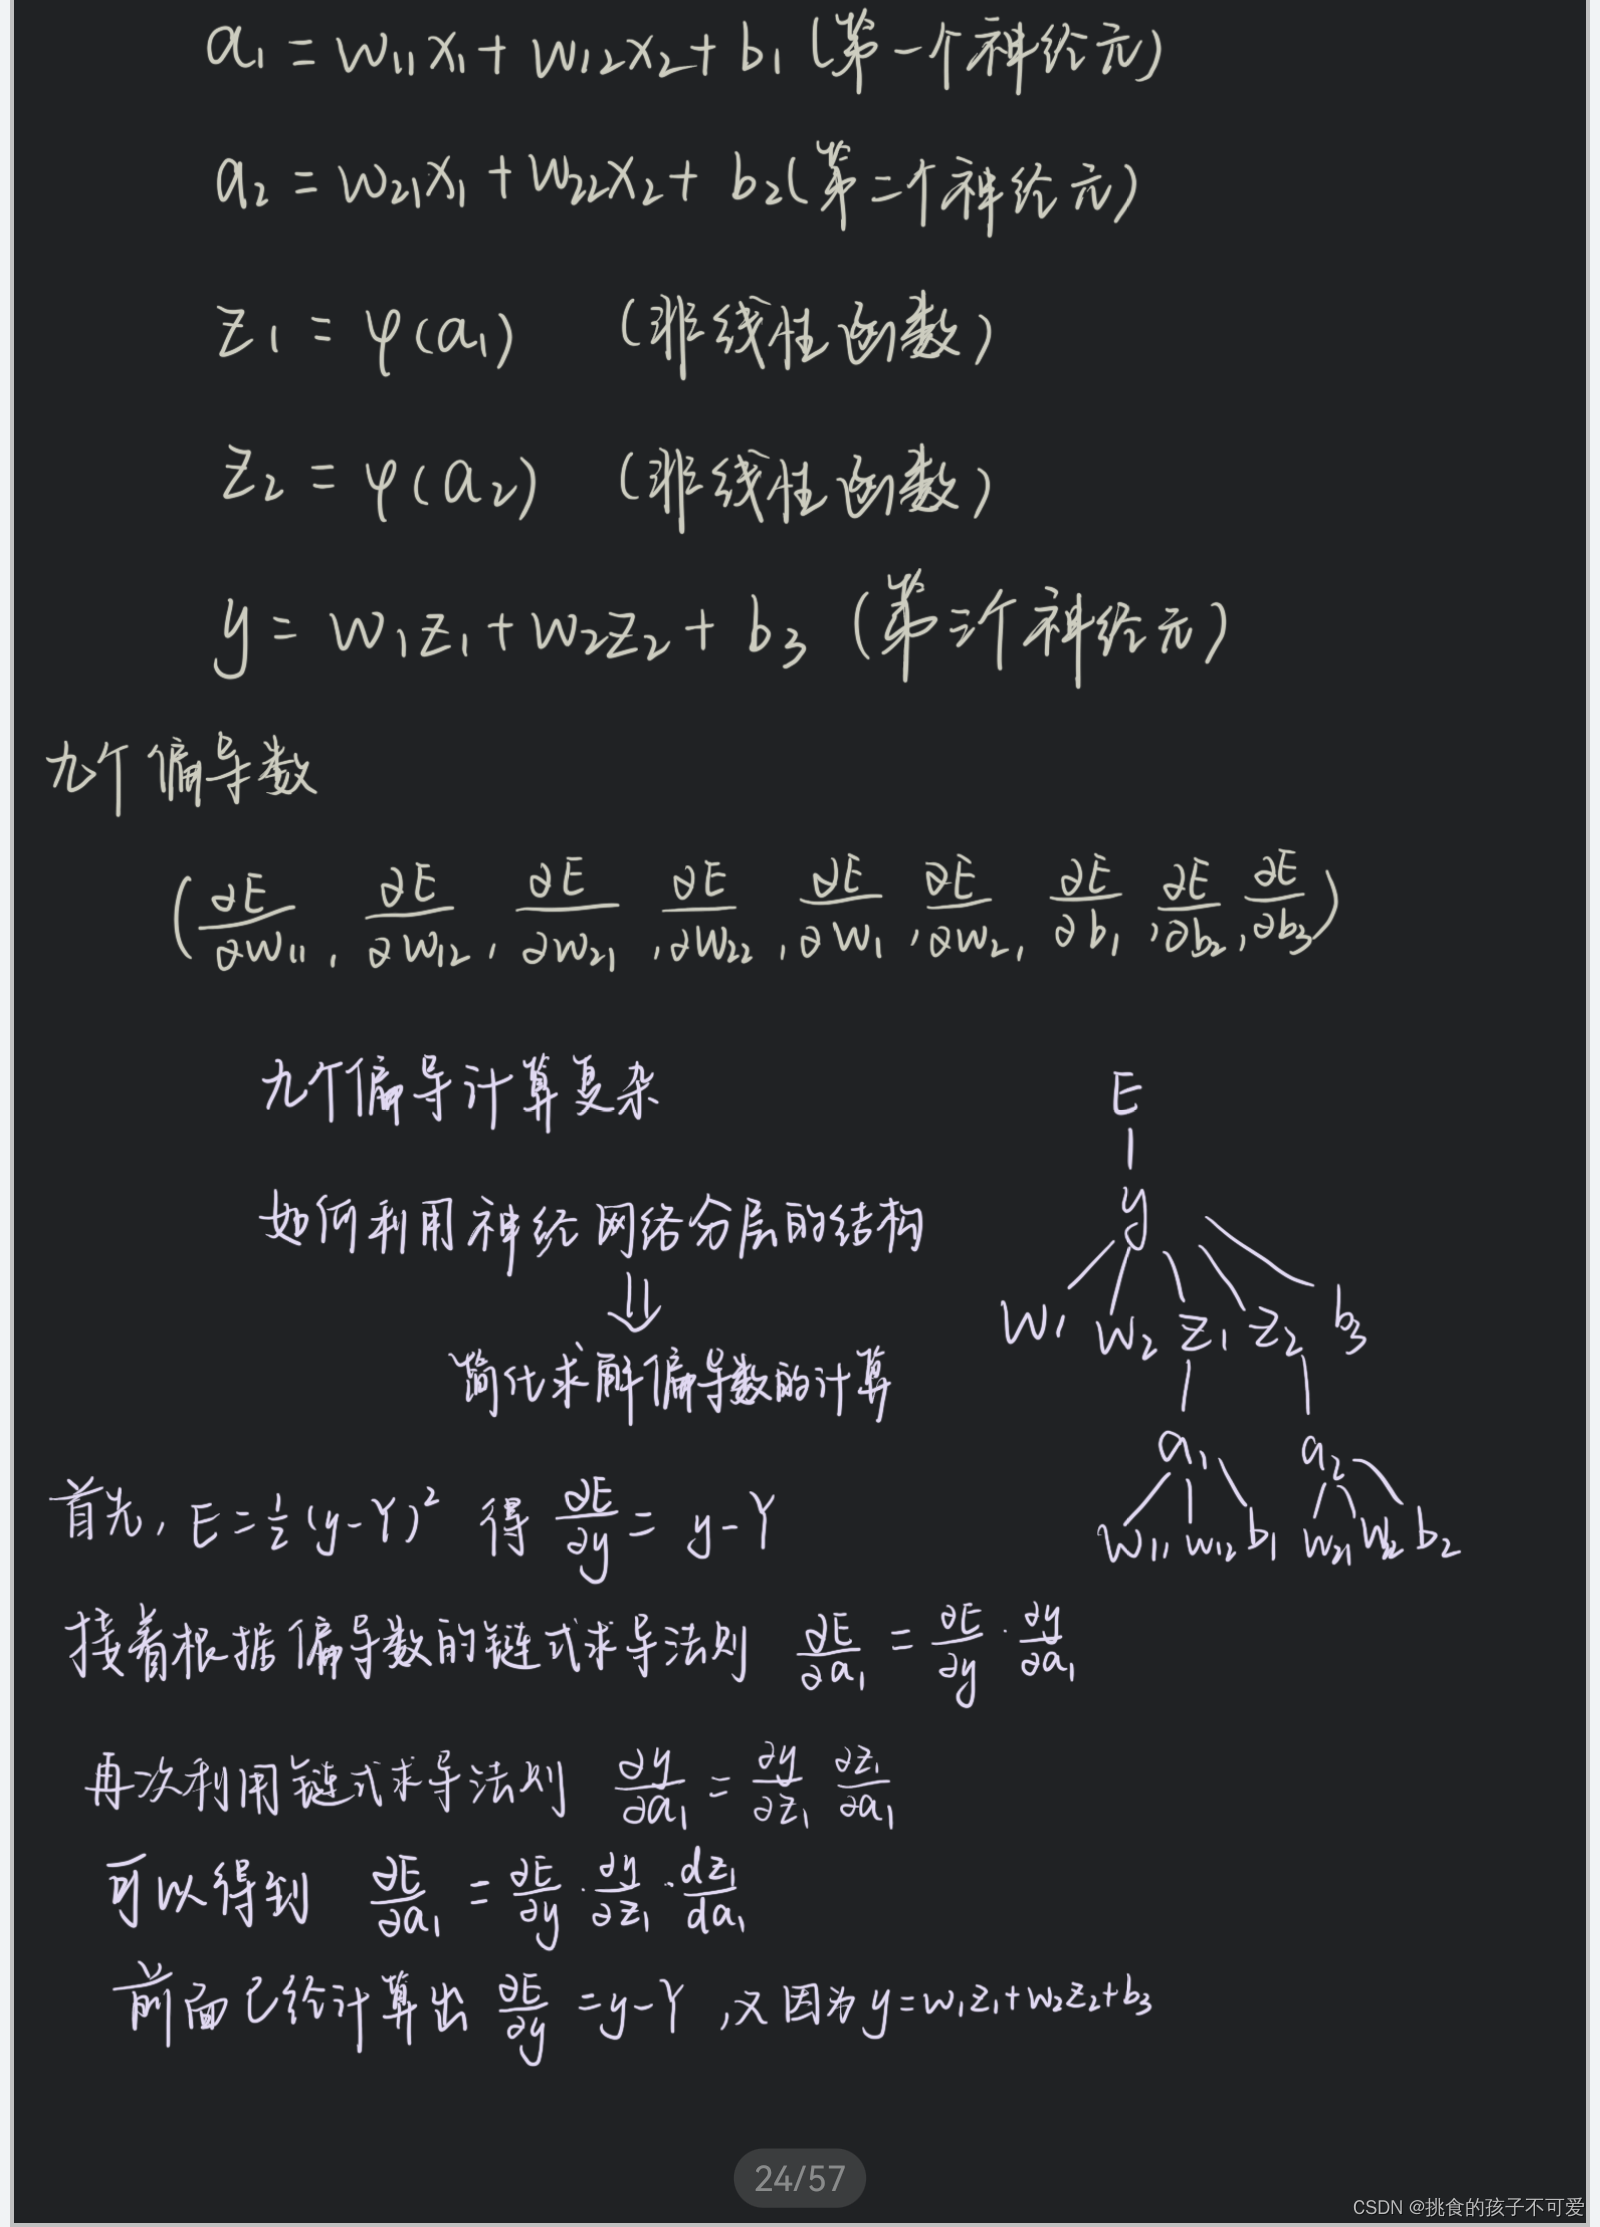 a₁ = w₁₁x₁ + w₁₂x₂ + b₁ (第一个神经元)
a₂ = w₂₁x₁ + w₂₂x₂ + b₂ (第二个神经元)
z₁ = φ(a₁) (非线性函数)
z₂ = φ(a₂) (非线性函数)
y = w₁z₁ + w₂z₂ + b₃ (第三个神经元)
九个偏导数
(∂E/∂w₁₁, ∂E/∂w₁₂, ∂E/∂w₂₁, ∂E/∂w₂₂, ∂E/∂w₁, ∂E/∂w₂, ∂E/∂b₁, ∂E/∂b₂, ∂E/∂b₃)
九个偏导计算复杂
如何利用神经网络分层的结构
⇓
简化求解偏导数的计算
E
y
w₁ w₂ z₁ z₂ b₃
a₁ a₂
w₁₁ w₁₂ b₁ w₂₁ w₂₂ b₂
首先, E = ½(y-Y)² 得 ∂E/∂y = y-Y
接着根据偏导数的链式求导法则 ∂E/∂a₁ = ∂E/∂y · ∂y/∂a₁
再次利用链式求导法则 ∂y/∂a₁ = ∂y/∂z₁ ∂z₁/∂a₁
可以得到 ∂E/∂a₁ = ∂E/∂y · ∂y/∂z₁ · dz₁/da₁
前面已经计算出 ∂E/∂y = y-Y ,又因为 y = w₁z₁+w₂z₂+b₃
24/57
CSDN @挑食的孩子不可爱